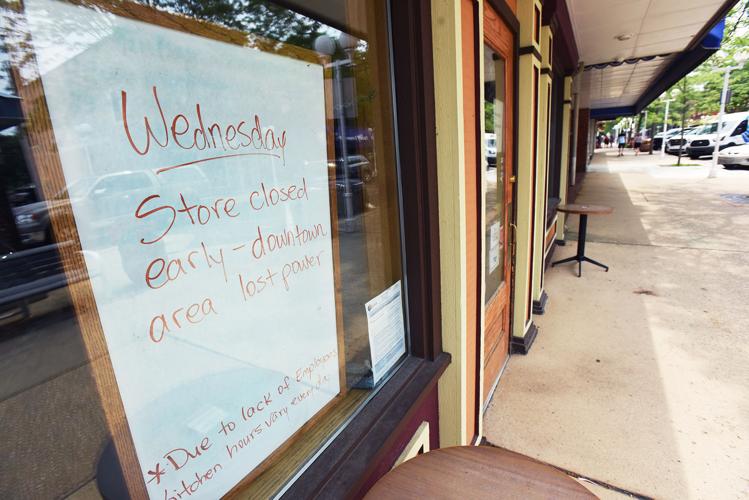 Wednesday
Store closed
early - downtown
area lost power
*Due to lack of Employees
kitchen hours vary every day